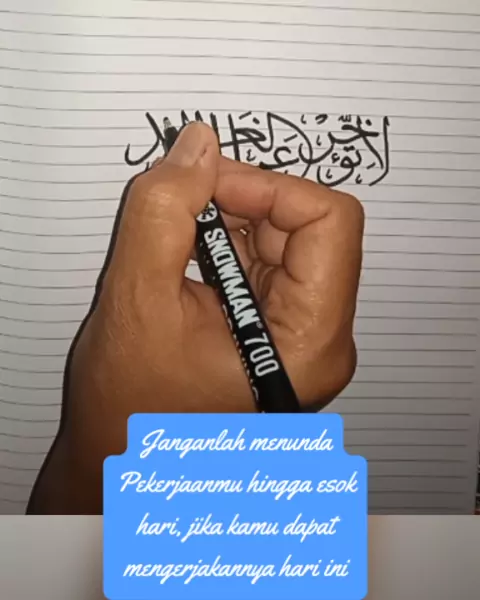 لَا تُؤَخِّرْ عَمَلَ
SNOWMAN® 700
Janganlah menunda
Pekerjaanmu hingga esok
hari, jika kamu dapat
mengerjakannya hari ini